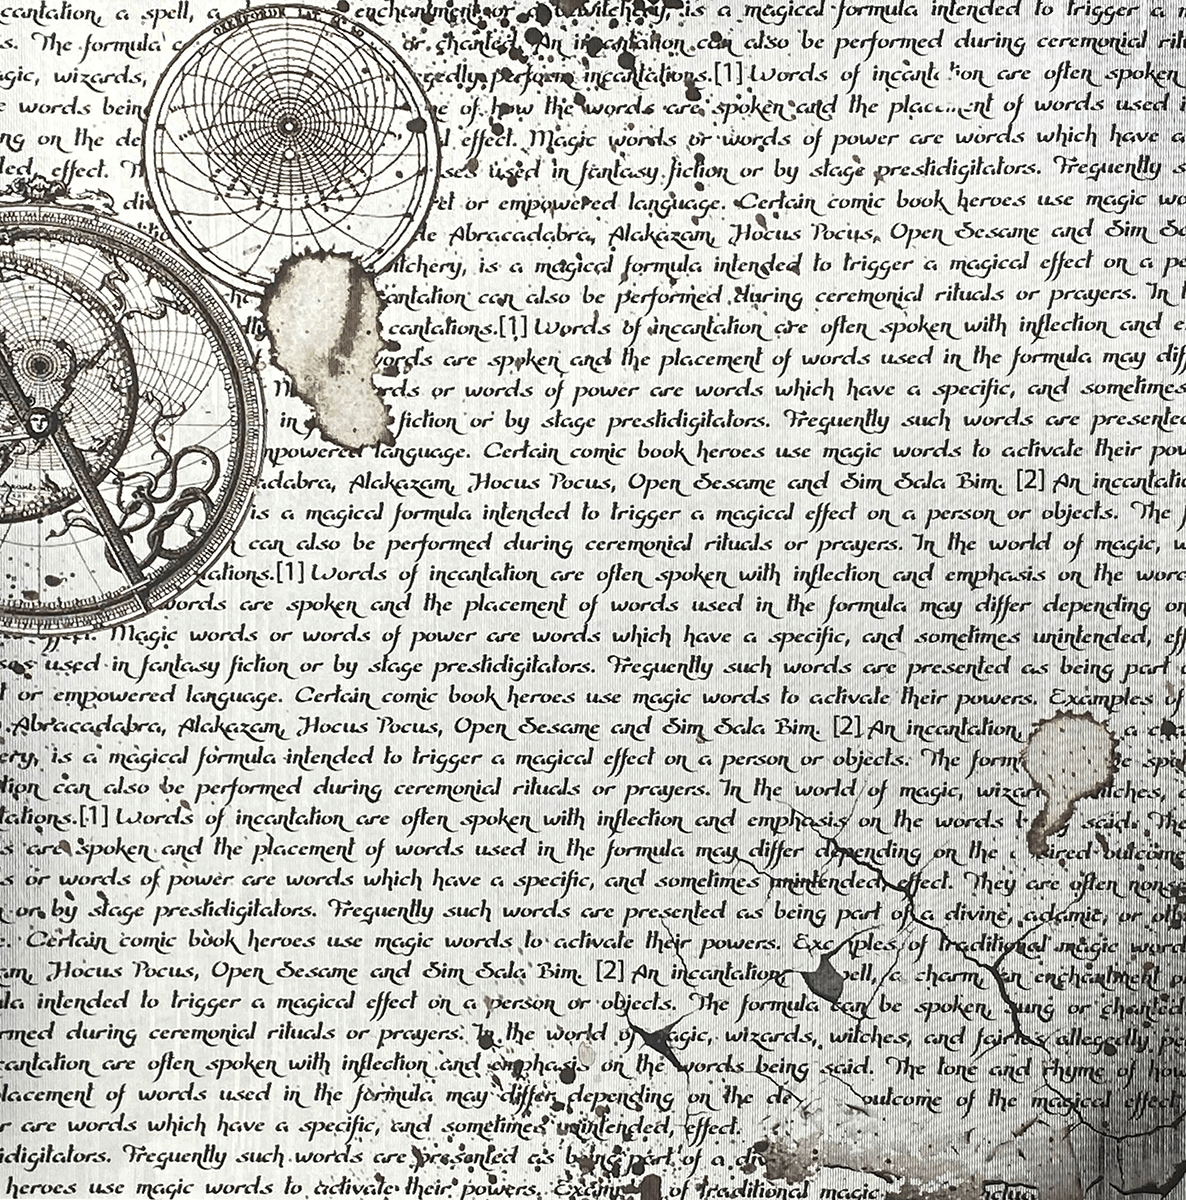 cantation, a spell, a enchantment or a bewitchery, is a magical formula intended to trigger a
s. The formula or chanted. An incantation can also be performed during ceremonial
agic, wizards, perform incantations.[1] Words of incantation are often spoken
e words being of how the words are spoken and the placement of words used
ng on the effect. Magic words or words of power are words which have a
effect. used in fantasy fiction or by stage prestidigitators. Frequently
or empowered language. Certain comic book heroes use magic
Abracadabra, Alakazam, Hocus Pocus, Open Sesame and Sim
itchery, is a magical formula intended to trigger a magical effect on a
antation can also be performed during ceremonial rituals or prayers. In
cantations.[1] Words of incantation are often spoken with inflection and
words are spoken and the placement of words used in the formula may
rds or words of power are words which have a specific, and sometimes
in fiction or by stage prestidigitators. Frequently such words are presented
mpowered language. Certain comic book heroes use magic words to activate their
adabra, Alakazam, Hocus Pocus, Open Sesame and Sim Sala Bim. [2] An
is a magical formula intended to trigger a magical effect on a person or objects. The
can also be performed during ceremonial rituals or prayers. In the world of magic,
tations.[1] Words of incantation are often spoken with inflection and emphasis on the
words are spoken and the placement of words used in the formula may differ depending on
effect. Magic words or words of power are words which have a specific, and sometimes unintended,
ses used in fantasy fiction or by stage prestidigitators. Frequently such words are presented as being part
t or empowered language. Certain comic book heroes use magic words to activate their powers. Examples of
Abracadabra, Alakazam, Hocus Pocus, Open Sesame and Sim Sala Bim. [2] An incantation, a
ery, is a magical formula intended to trigger a magical effect on a person or objects. The
tion can also be performed during ceremonial rituals or prayers. In the world of magic,
tations.[1] Words of incantation are often spoken with inflection and emphasis on the words said. The
s are spoken and the placement of words used in the formula may differ depending on the outcome
s or words of power are words which have a specific, and sometimes unintended, effect. They are often
or by stage prestidigitators. Frequently such words are presented as being part of a divine, adamic, or
e. Certain comic book heroes use magic words to activate their powers. of traditional magic
am, Hocus Pocus, Open Sesame and Sim Sala Bim. [2] An incantation, a charm, an enchantment
ula intended to trigger a magical effect on a person or objects. The formula can be spoken, sung or chanted.
rmed during ceremonial rituals or prayers. In the world of magic, wizards, witches, and fairies allegedly
cantation are often spoken with inflection and emphasis on the words being said. The tone and rhyme of how
lacement of words used in the formula may differ depending on the outcome of the magical effect.
r are words which have a specific, and sometimes unintended, effect.
idigitators. Frequently such words are presented as being part of a
heroes use magic words to activate their powers. of traditional magic